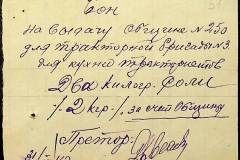 Бон
на выдачу Общине № 250
для тракторной бригады № 3
для кухни трактористов
Два килогр. соли
/. 2 кгр /. за счет Общины
/Претор: